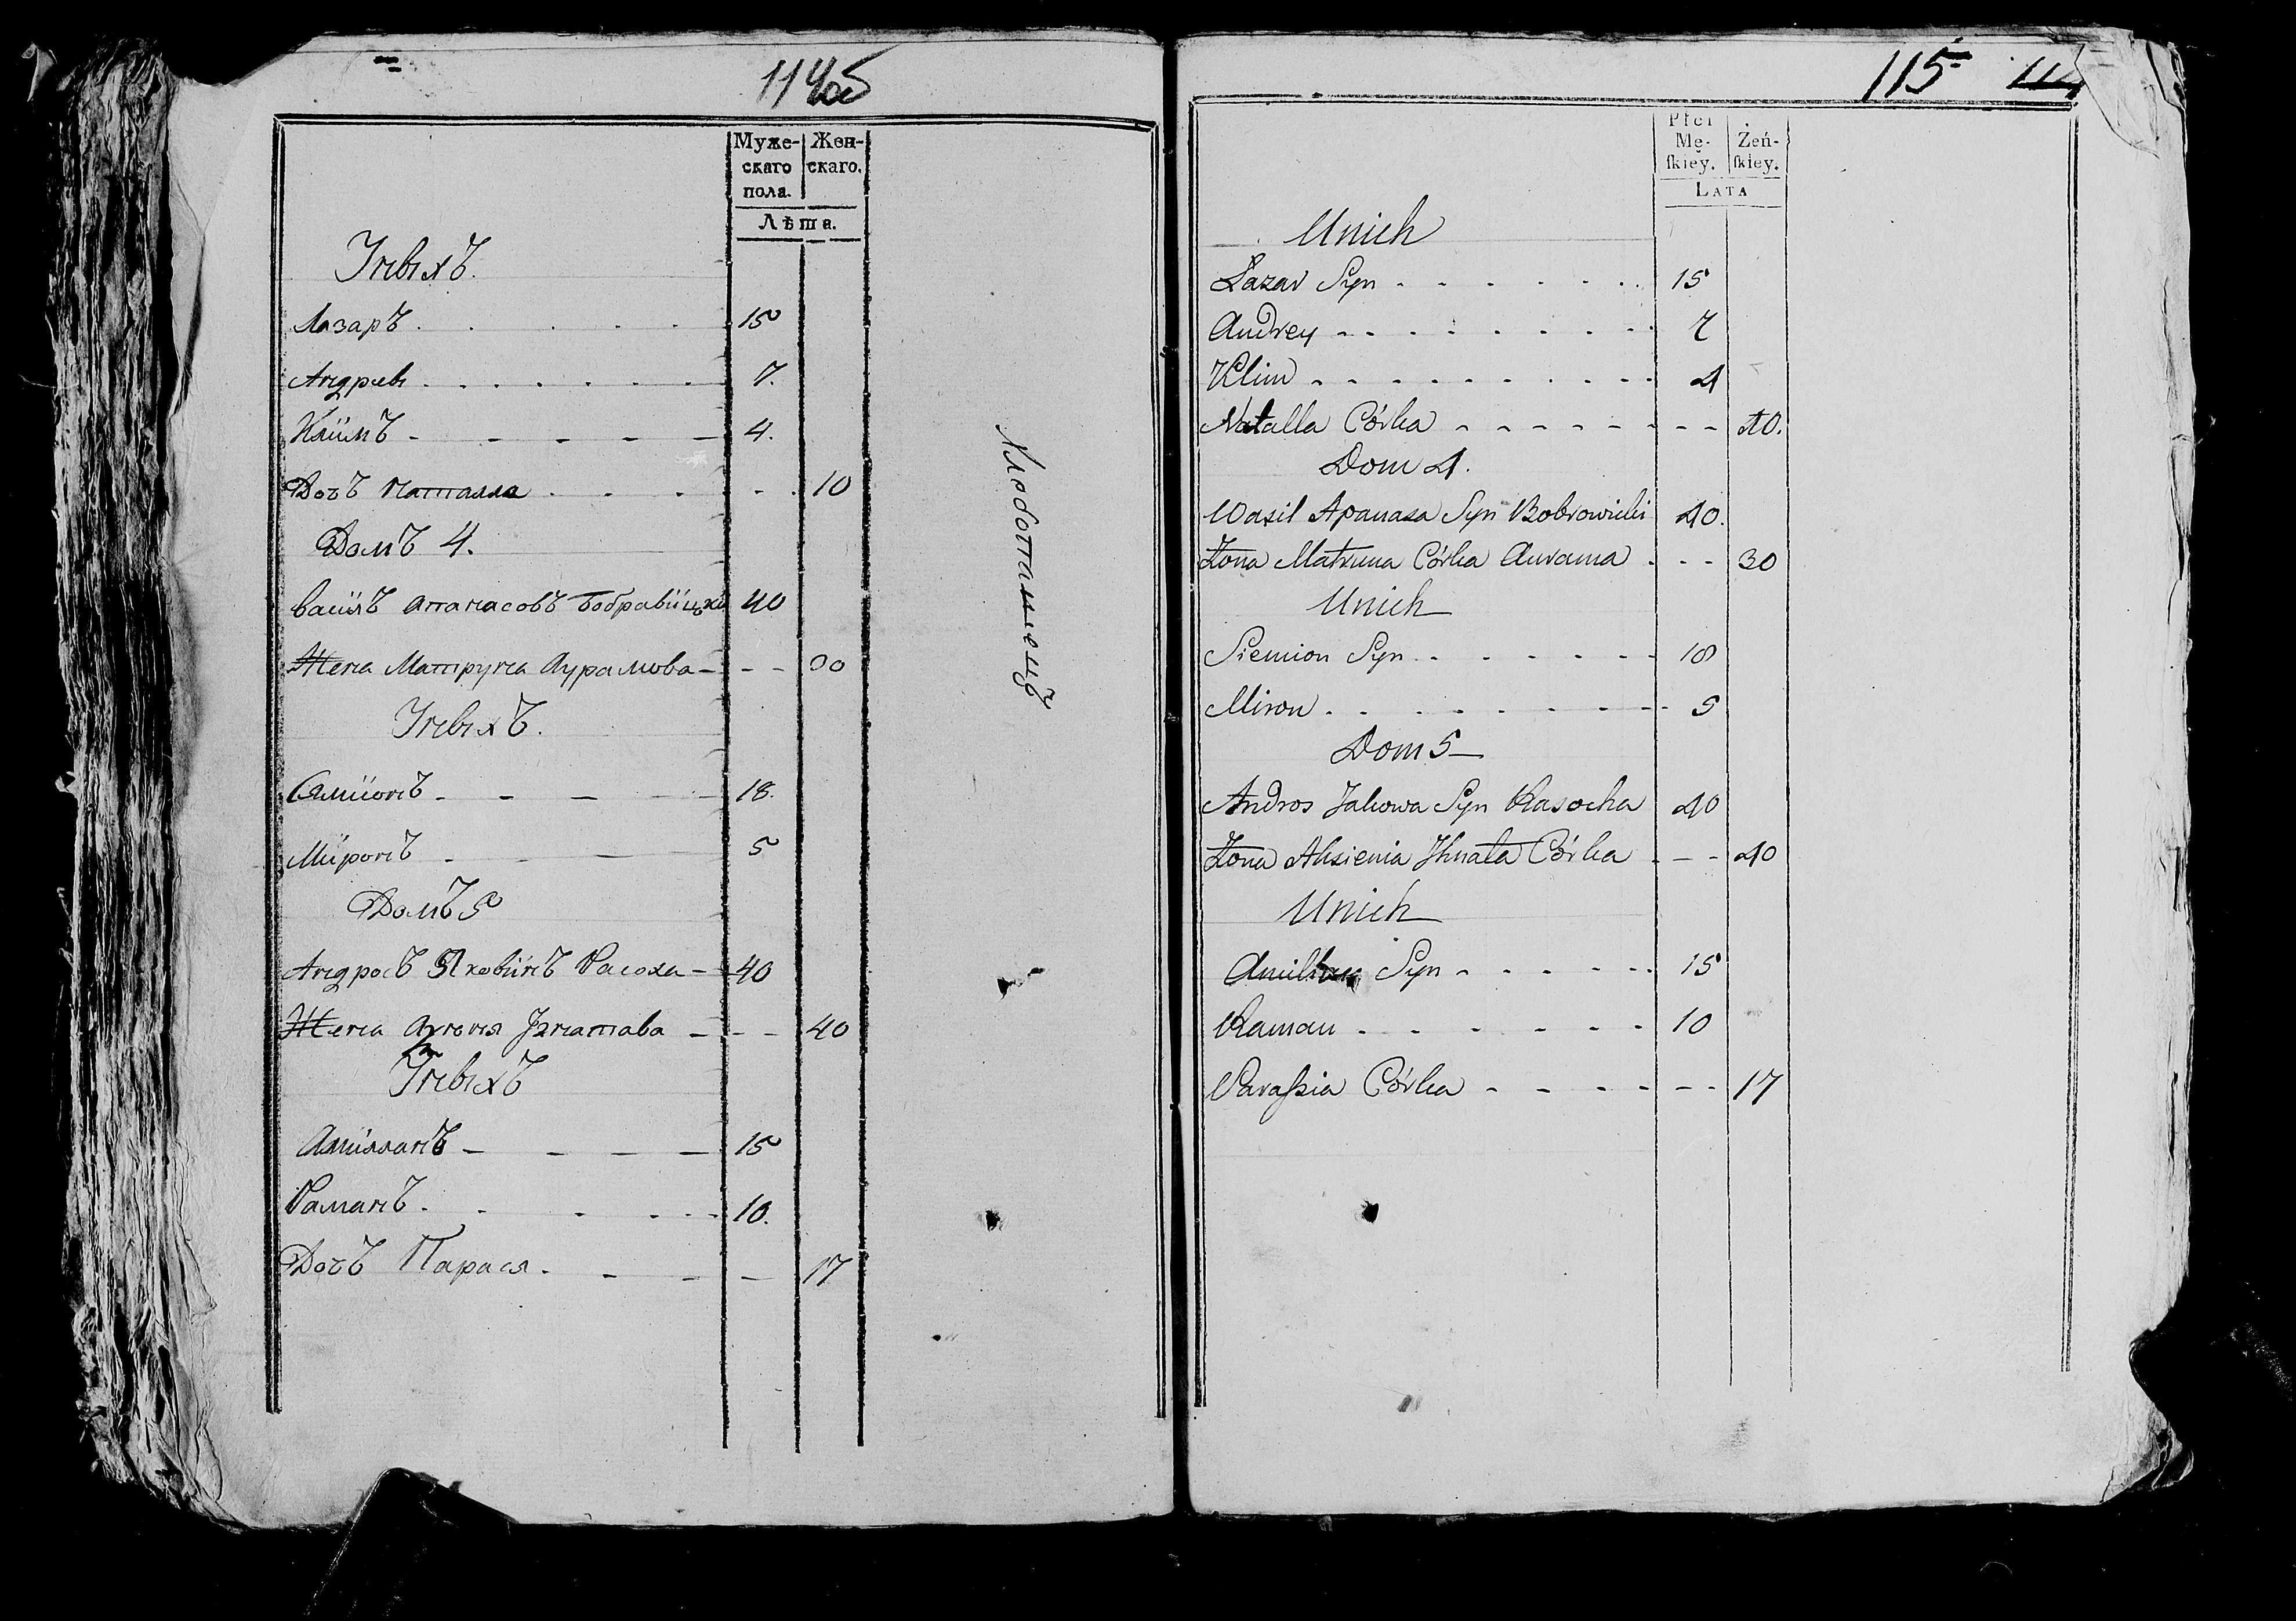 114об
Муже-
скаго
пола.
Жен-
скаго.
Лѣта.
Унвıхъ.
Лазаръ 15
Андрей 7.
Клімъ 4.
Дочъ Наталла 10
Домъ 4.
Васілъ Апанасовъ Бобравіцькі 40
Жена Матруна Аурамова 30
Унвıхъ.
Сяміонъ 18.
Міронъ 5
Домъ 5
Андросъ Яковінъ Расоха 40
Жена Ігнатава 40
Унвıхъ
Аміллянъ 15
Раманъ 10.
Дочъ Парася 17
115
Płci
Mę-
ſkiey.
Żeń-
ſkiey.
LATA
U nich
Łazar Syn 15
Andrey 7
Klim 4
Natalla Córka 10.
Dom 4.
Wasil Apanasa Syn Bobrowicki 40.
Żona Matruna Córka Aurama 30
U nich
Siemion Syn 18
Miron 5
Dom 5
Andros Jakowa Syn Rasocha 40
Żona Aksienia Ihnata Córka 40
U nich
Amillian Syn 15
Raman 10
Paraſzia Córka 17